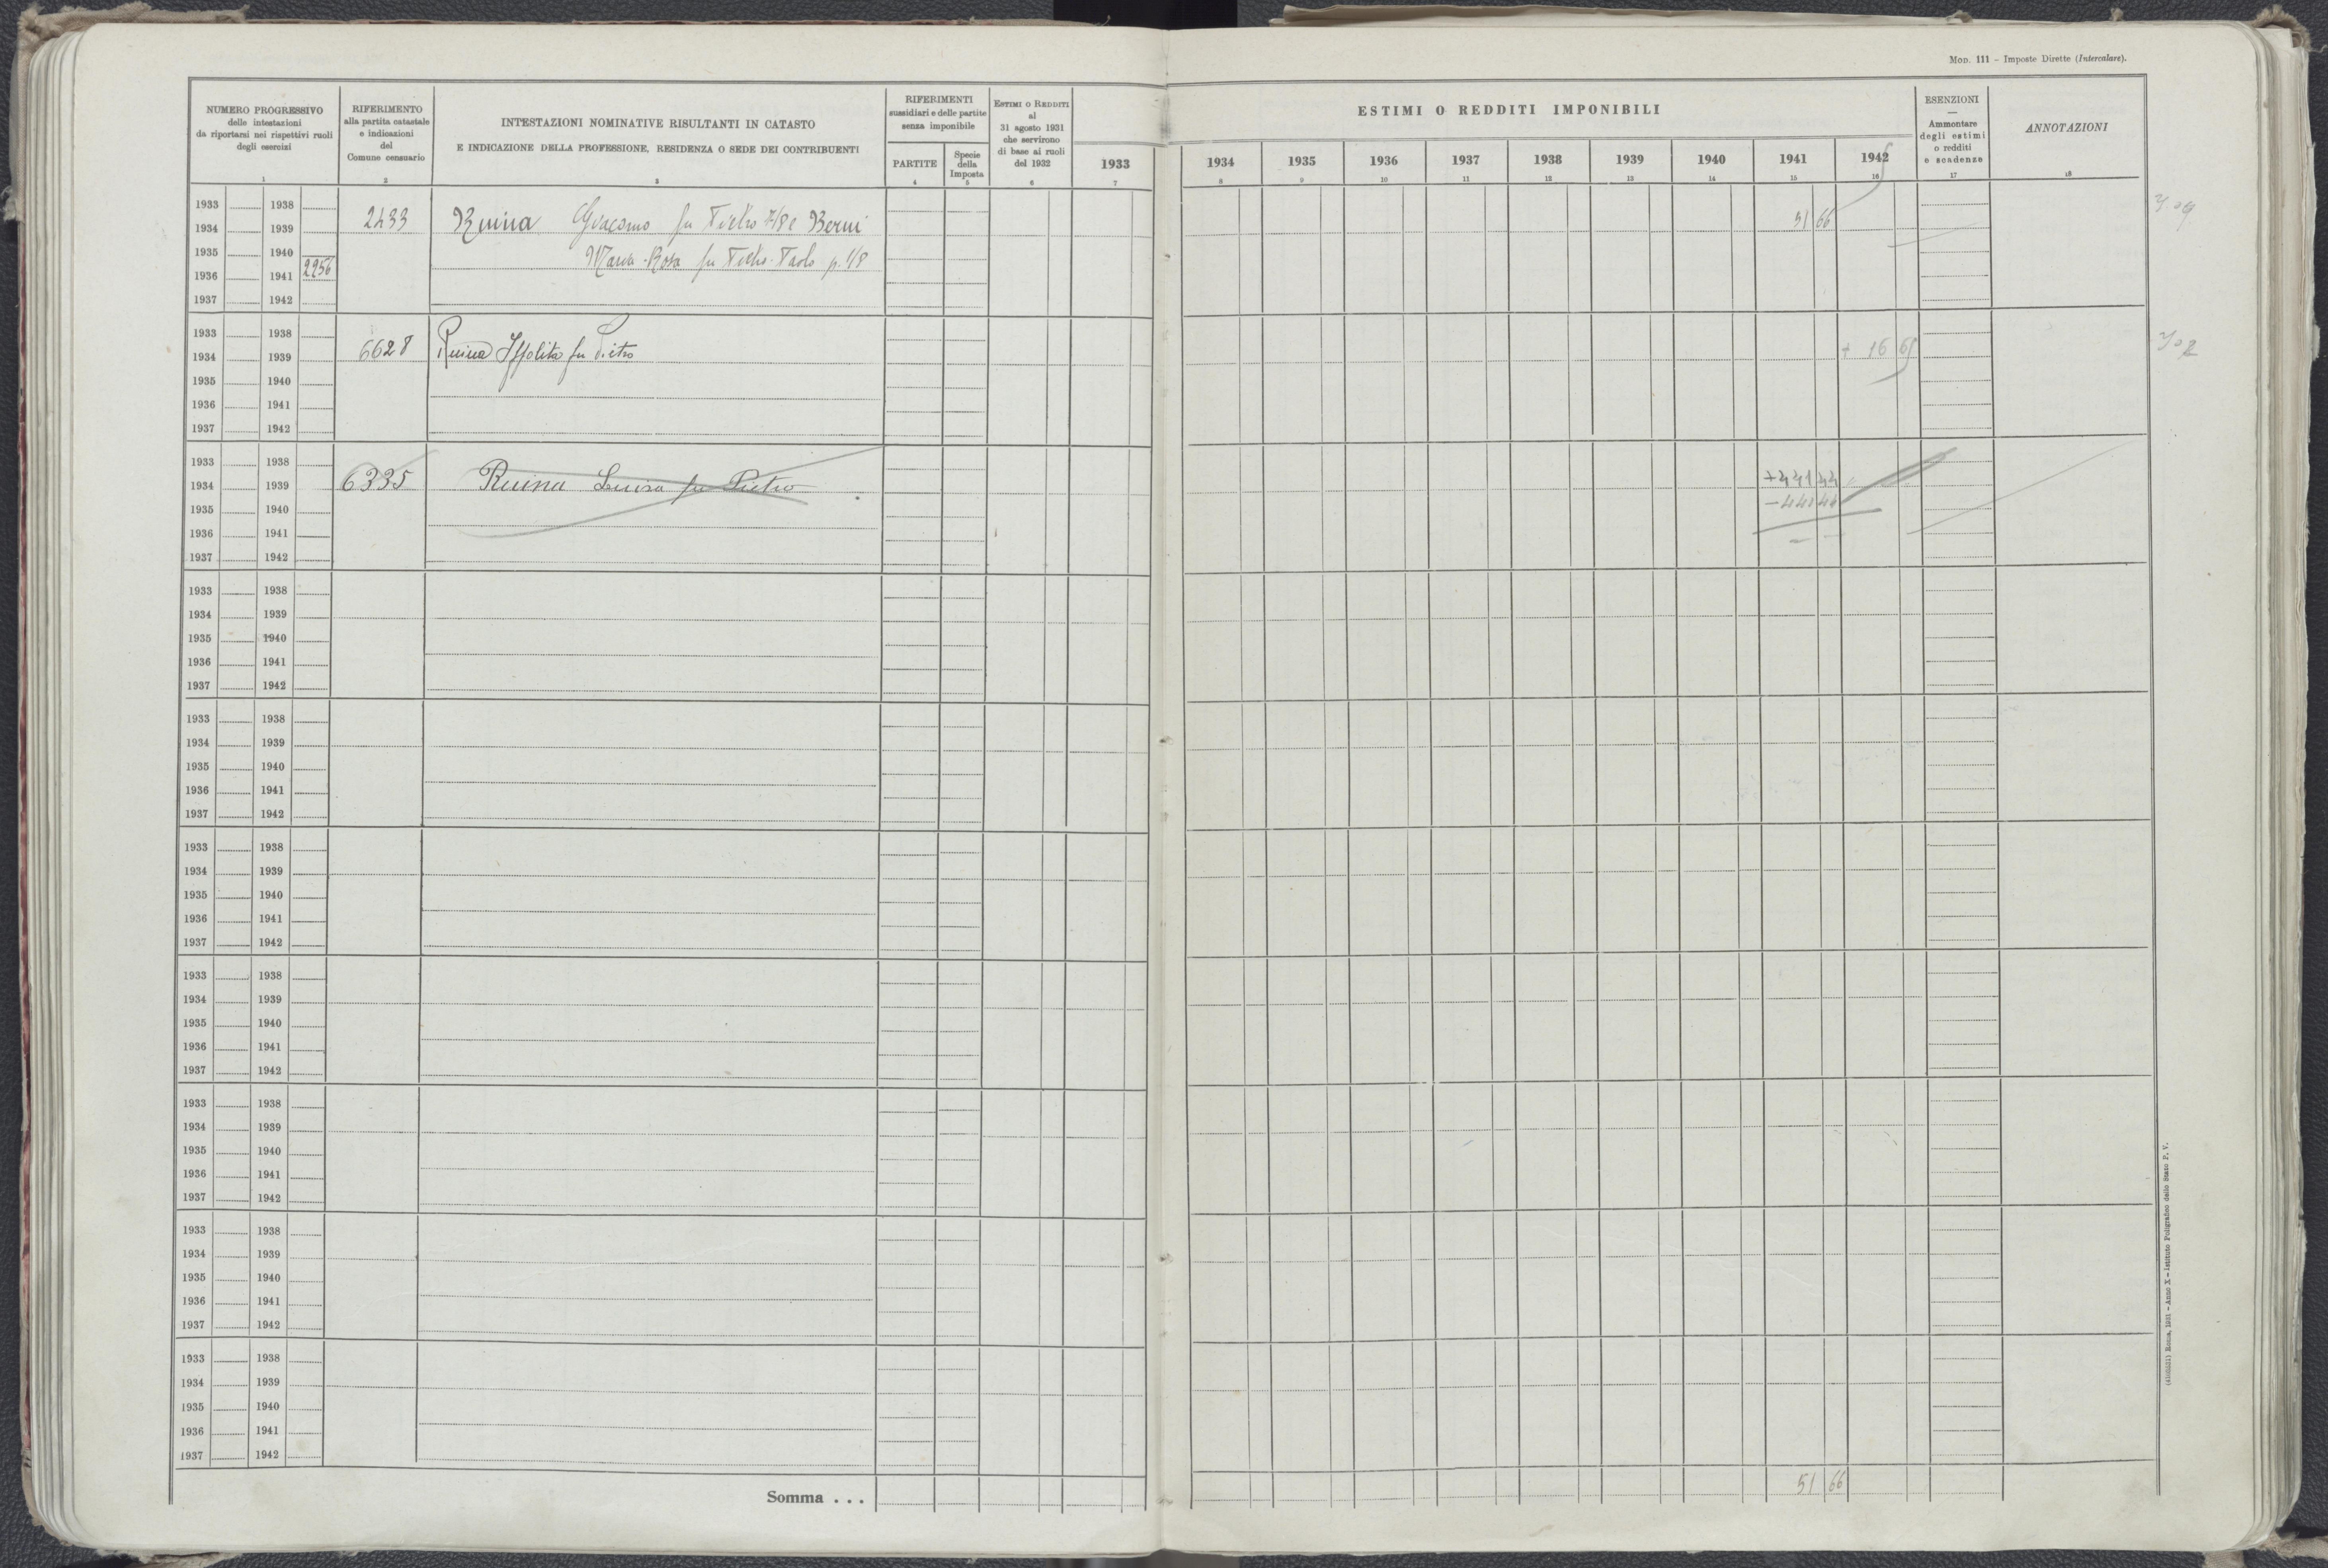 Mod. 111 – Imposte Dirette (Intercalare).
NUMERO PROGRESSIVO
delle intestazioni
da riportarsi nei rispettivi ruoli
degli esercizi
1
RIFERIMENTO
alla partita catastale
e indicazioni
del
Comune censuario
2
INTESTAZIONI NOMINATIVE RISULTANTI IN CATASTO
E INDICAZIONE DELLA PROFESSIONE, RESIDENZA O SEDE DEI CONTRIBUENTI
3
RIFERIMENTI
sussidiari e delle partite
senza imponibile
PARTITE
4
Specie
della
Imposta
5
ESTIMI O REDDITI
al
31 agosto 1931
che servirono
di base ai ruoli
del 1932
6
ESTIMI O REDDITI IMPONIBILI
1933 1934 1935 1936 1937 1938 1939 1940 1941 1942
7 8 9 10 11 12 13 14 15 16
ESENZIONI
—
Ammontare
degli estimi
o redditi
e scadenze
17
ANNOTAZIONI
18
1933 1938
1934 1939 2433 Ruina Giacomo fu Pietro 7/8 e Berni 51 66
1935 1940 Maria-Rosa fu Pietro-Paolo p. 1/8
1936 1941 2256
1937 1942
1933 1938
1934 1939 6628 Ruina Ippolito fu Pietro + 16 65
1935 1940
1936 1941
1937 1942
1933 1938
1934 1939 6335 Ruina Luisa fu Pietro +441 44
1935 1940 -441 44
1936 1941
1937 1942
1933 1938
1934 1939
1935 1940
1936 1941
1937 1942
1933 1938
1934 1939
1935 1940
1936 1941
1937 1942
1933 1938
1934 1939
1935 1940
1936 1941
1937 1942
1933 1938
1934 1939
1935 1940
1936 1941
1937 1942
1933 1938
1934 1939
1935 1940
1936 1941
1937 1942
1933 1938
1934 1939
1935 1940
1936 1941
1937 1942
1933 1938
1934 1939
1935 1940
1936 1941
1937 1942
Somma . . . 51 66
Roma, 1931 - Anno X - Istituto Poligrafico dello Stato P. V.